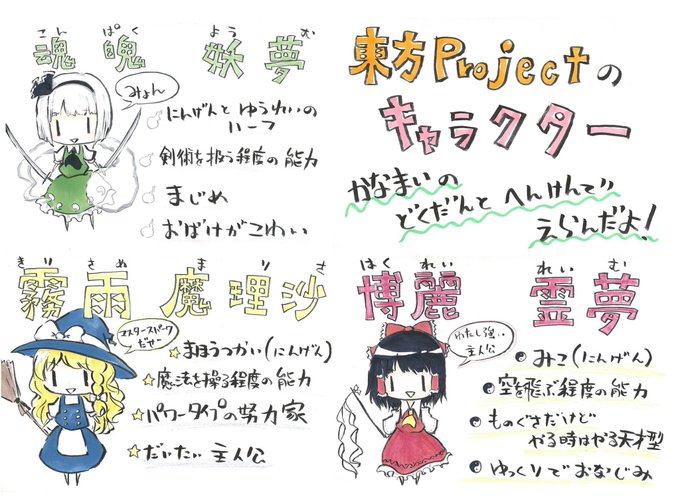 こん ぱく よう む
魂魄 妖夢
みょん
にんげんと ゆうれいの
ハーフ
剣術を扱う程度の能力
まじめ
おばけがこわい
東方Projectの
キャラクター
かなまいの
どくだんと へんけんで
えらんだよ!
きり さめ ま り さ
霧雨 魔理沙
マスタースパーク
だぜ
まほうつかい(にんげん)
魔法を操る程度の能力
パワータイプの努力家
だいたい 主人公
はく れい れい む
博麗 霊夢
わたし強い
主人公
みこ(にんげん)
空を飛ぶ程度の能力
ものぐさだけど
やる時はやる天才型
ゆっくりでおなじみ